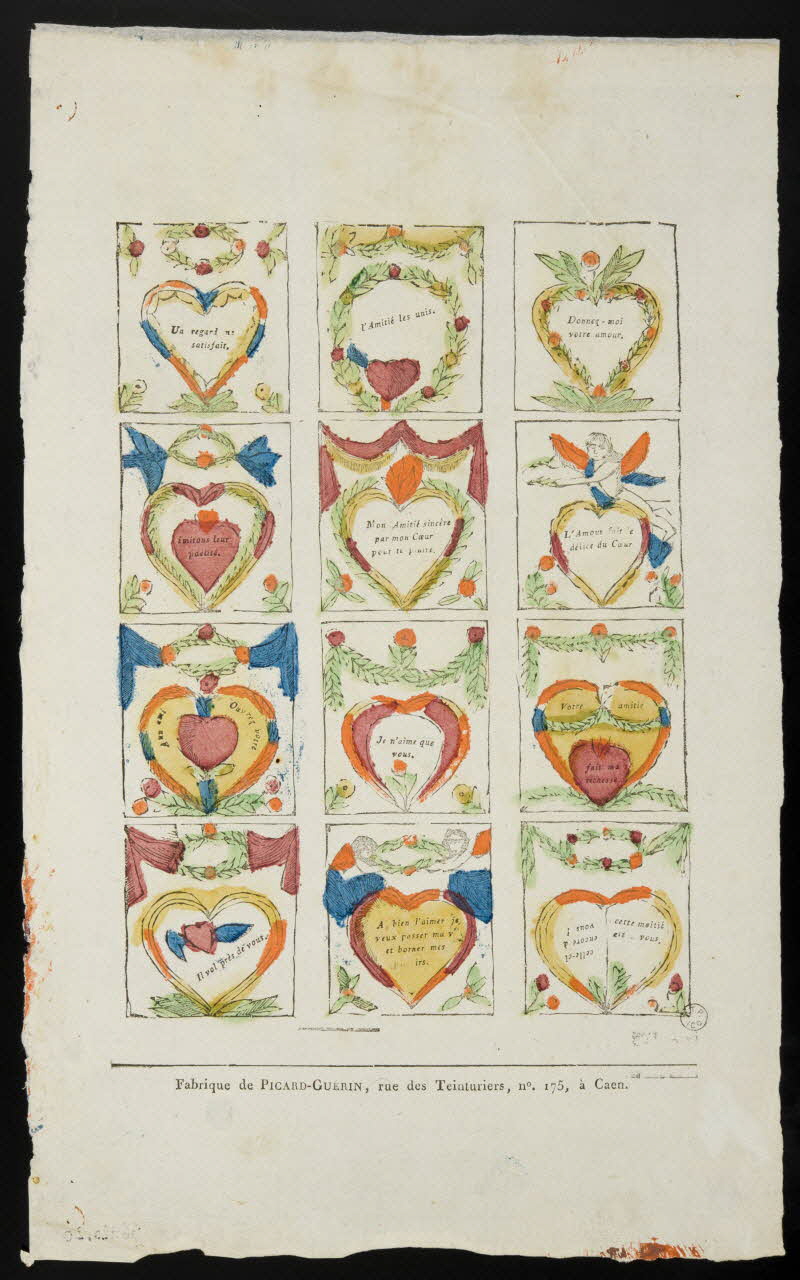 Un regard me
satisfait.
l'Amitié les unis.
Donnez-moi
votre amour.
imitons leur
fidelité.
Mon Amitié sincère
par mon Cœur
L'Amour fait le
délice du Cœur
A un ami
Ouvrez votre
Je n'aime que
vous.
Votre amitié
fait ma
richesse.
Il vol près de vous.
A bien l'aimer je
veux passer ma
et borner mes
cette moitié
est vous.
celle-ci
encore à
vous !
Fabrique de PICARD-GUERIN, rue des Teinturiers, nº. 175, à Caen.